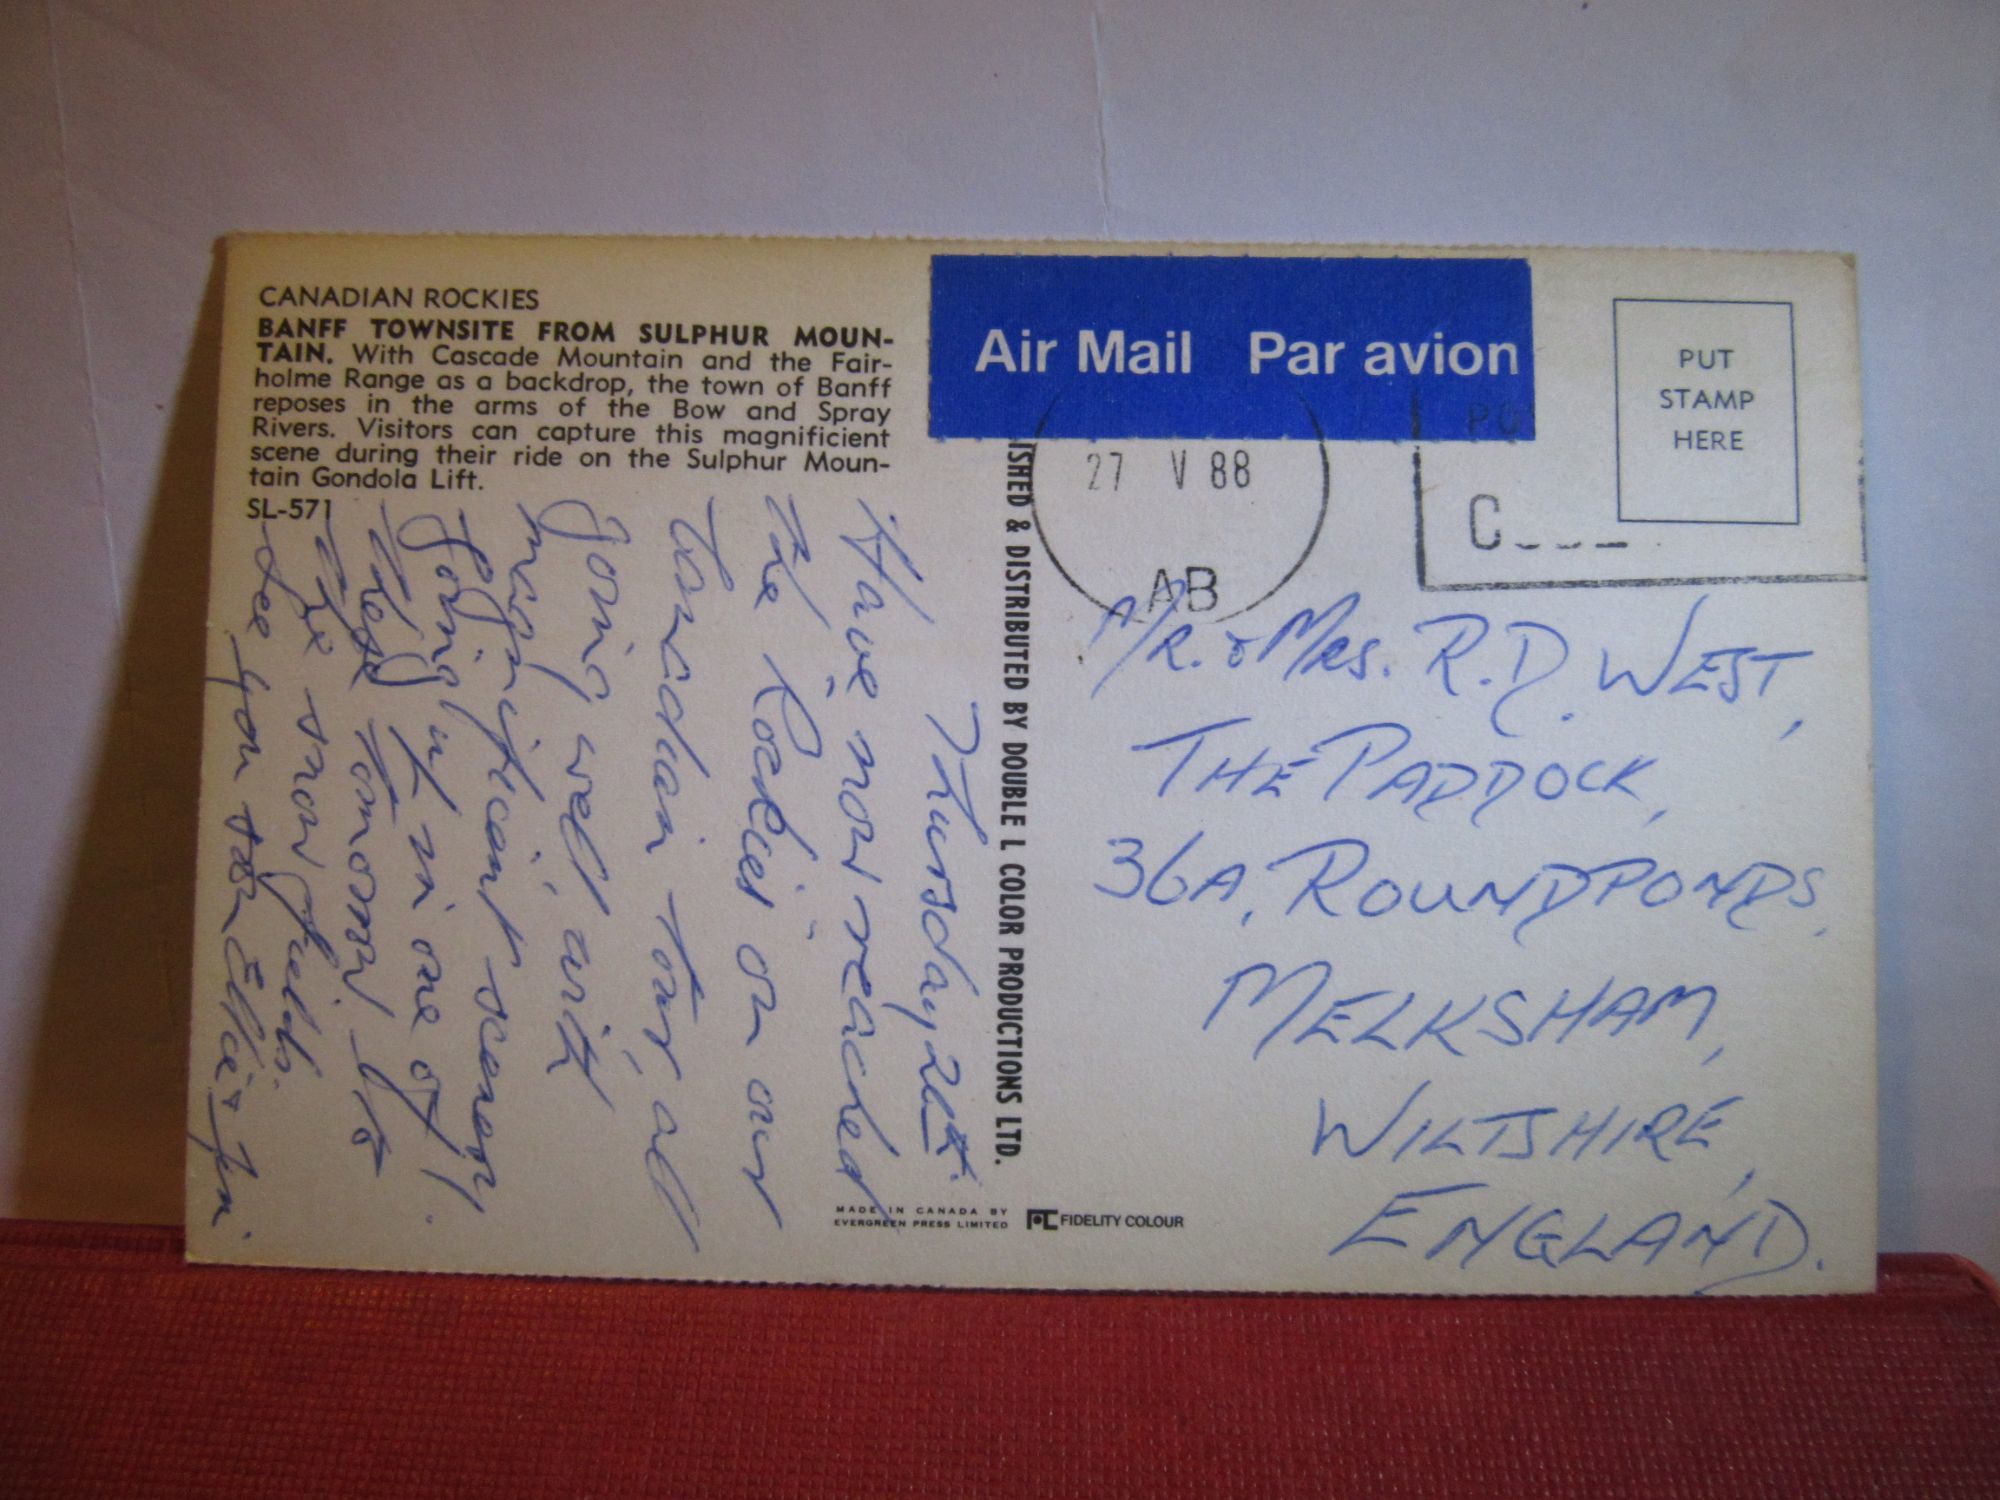 CANADIAN ROCKIES
BANFF TOWNSITE FROM SULPHUR MOUN-
TAIN. With Cascade Mountain and the Fair-
holme Range as a backdrop, the town of Banff
reposes in the arms of the Bow and Spray
Rivers. Visitors can capture this magnificient
scene during their ride on the Sulphur Moun-
tain Gondola Lift.
SL-571
Thursday 26th.
Have now reached
the Rockies on our
Canadian Tour, all
going well, with
magnificent scenery.
Going up in one of
these tomorrow to
the snow fields.
See you soon Elsie & Jim.
ISHED & DISTRIBUTED BY DOUBLE L COLOR PRODUCTIONS LTD.
MADE IN CANADA BY
EVERGREEN PRESS LIMITED
FIDELITY COLOUR
Air Mail Par avion
27 V 88
AB
PUT
STAMP
HERE
MR. & MRS. R.D. WEST,
THE PADDOCK,
36A, ROUNDPONDS,
MELKSHAM,
WILTSHIRE,
ENGLAND.